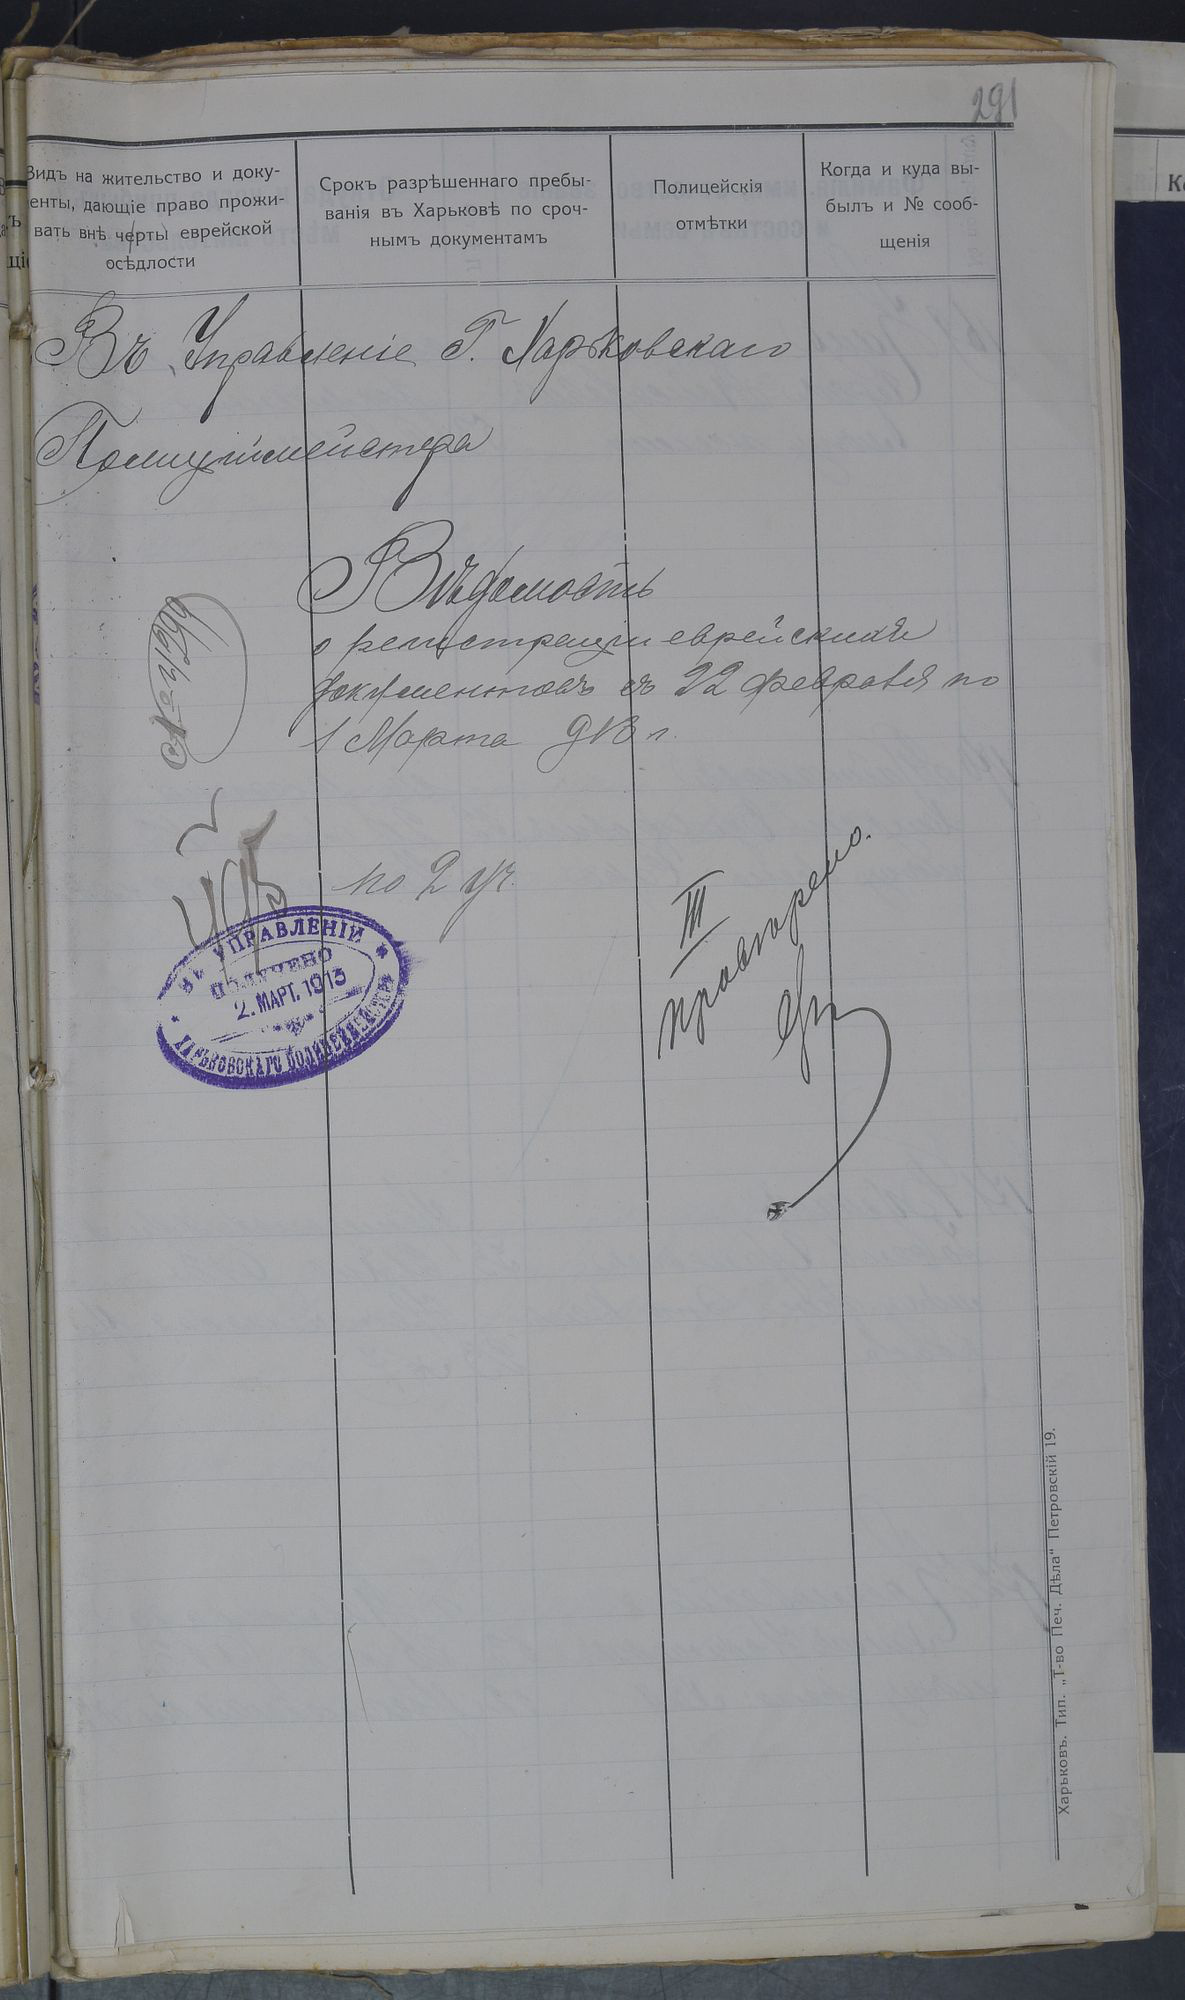 291
Видъ на жительство и доку-
енты, дающіе право прожи-
вать внѣ черты еврейской
осѣдлости
Срокъ разрѣшеннаго пребы-
ванія въ Харьковѣ по сроч-
нымъ документамъ
Полицейскія
отмѣтки
Когда и куда вы-
былъ и № сооб-
щенія
Въ Управленіе Г. Харьковскаго
Полицiймейстера
Вѣдомость
о регистраціи еврейскихъ
документовъ съ 22 февраля по
1 Марта 913 г.
по 2 уч.
III
проверено.
ВЪ УПРАВЛЕНІИ
ПОЛУЧЕНО
2. МАРТ. 1913
ХАРЬКОВСКАГО ПОЛИЦЕЙМЕЙСТЕРА
Харьковъ. Тип. „Т-во Печ. Дѣла“ Петровскій 19.